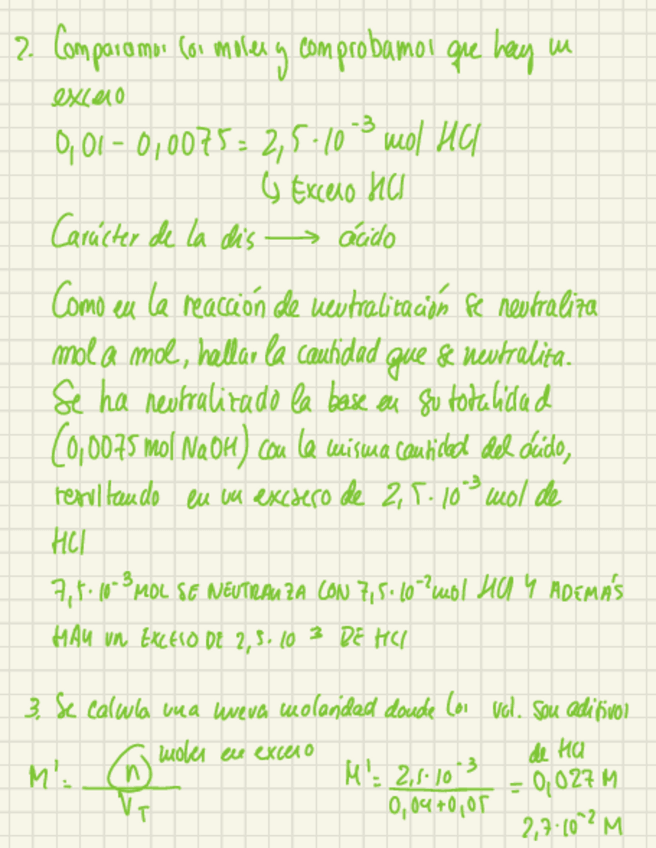 2. Comparamos los moles y comprobamos que hay un
exceso
0,01 - 0,0075 = 2,5·10⁻³ mol HCl
↳ Exceso HCl
Carácter de la dis → ácido
Como en la reacción de neutralización se neutraliza
mol a mol, hallar la cantidad que se neutraliza.
Se ha neutralizado la base en su totalidad
(0,0075 mol NaOH) con la misma cantidad del ácido,
resultando en un excseco de 2,5·10⁻³ mol de
HCl
7,5·10⁻³ MOL SE NEUTRALIZA CON 7,5·10⁻² mol HCl Y ADEMÁS
HAY UN EXCESO DE 2,5·10 ³ DE HCl
3. Se calcula una nueva molaridad donde los vol. son aditivos
M' = n / V_T moles en exceso
M' = 2,5·10⁻³ / 0,04+0,05 = 0,027 M de HCl
2,7·10⁻² M